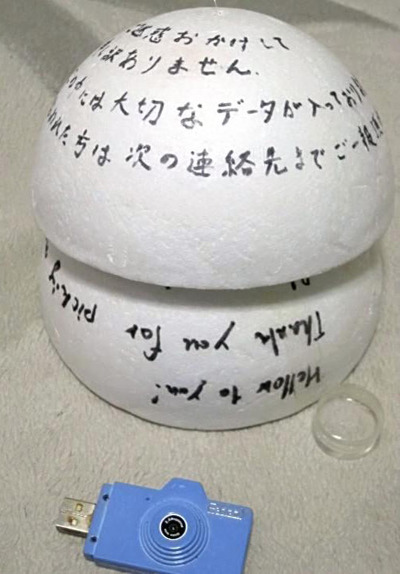 迷惑おかけして
訳ありません.
中には大切なデータが入っており
われた方は次の連絡先までご一報
Hellow to you!
Thank you for
picking